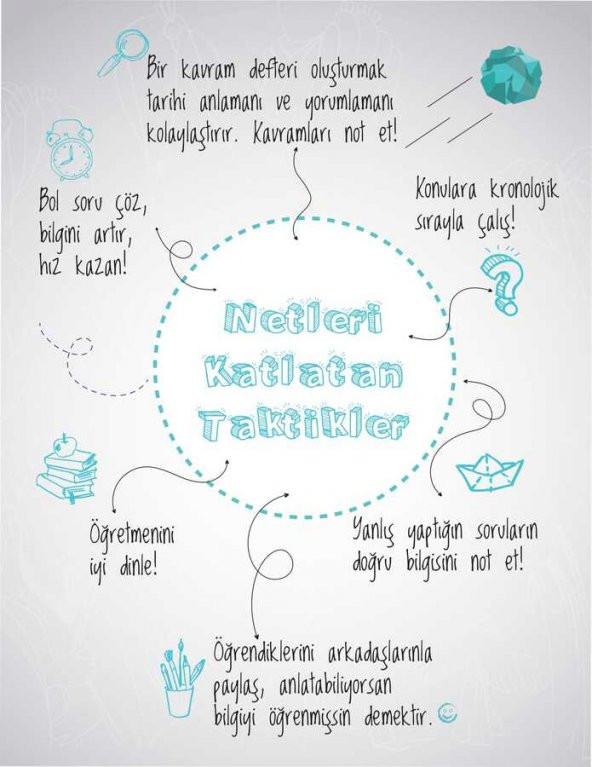 Bir kavram defteri oluşturmak
tarihi anlamanı ve yorumlamanı
kolaylaştırır. Kavramları not et!
Bol soru çöz,
bilgini artır,
hız kazan!
Konulara kronolojik
sırayla çalış!
Netleri
Katlatan
Taktikler
Öğretmenini
iyi dinle!
Yanlış yaptığın soruların
doğru bilgisini not et!
Öğrendiklerini arkadaşlarınla
paylaş, anlatabiliyorsan
bilgiyi öğrenmişsin demektir.